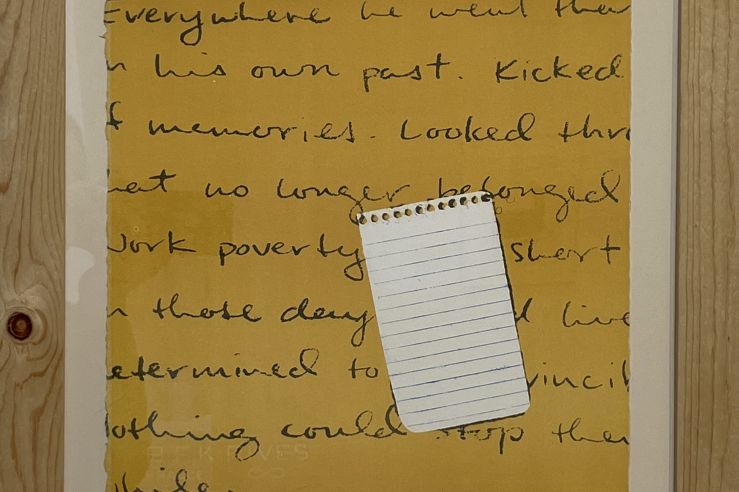 Everywhere he went the
n his own past. Kicked
f memories. Looked thro
hat no longer belonged
Work poverty short
n those days d live
etermined to vincib
othing could stop the
while